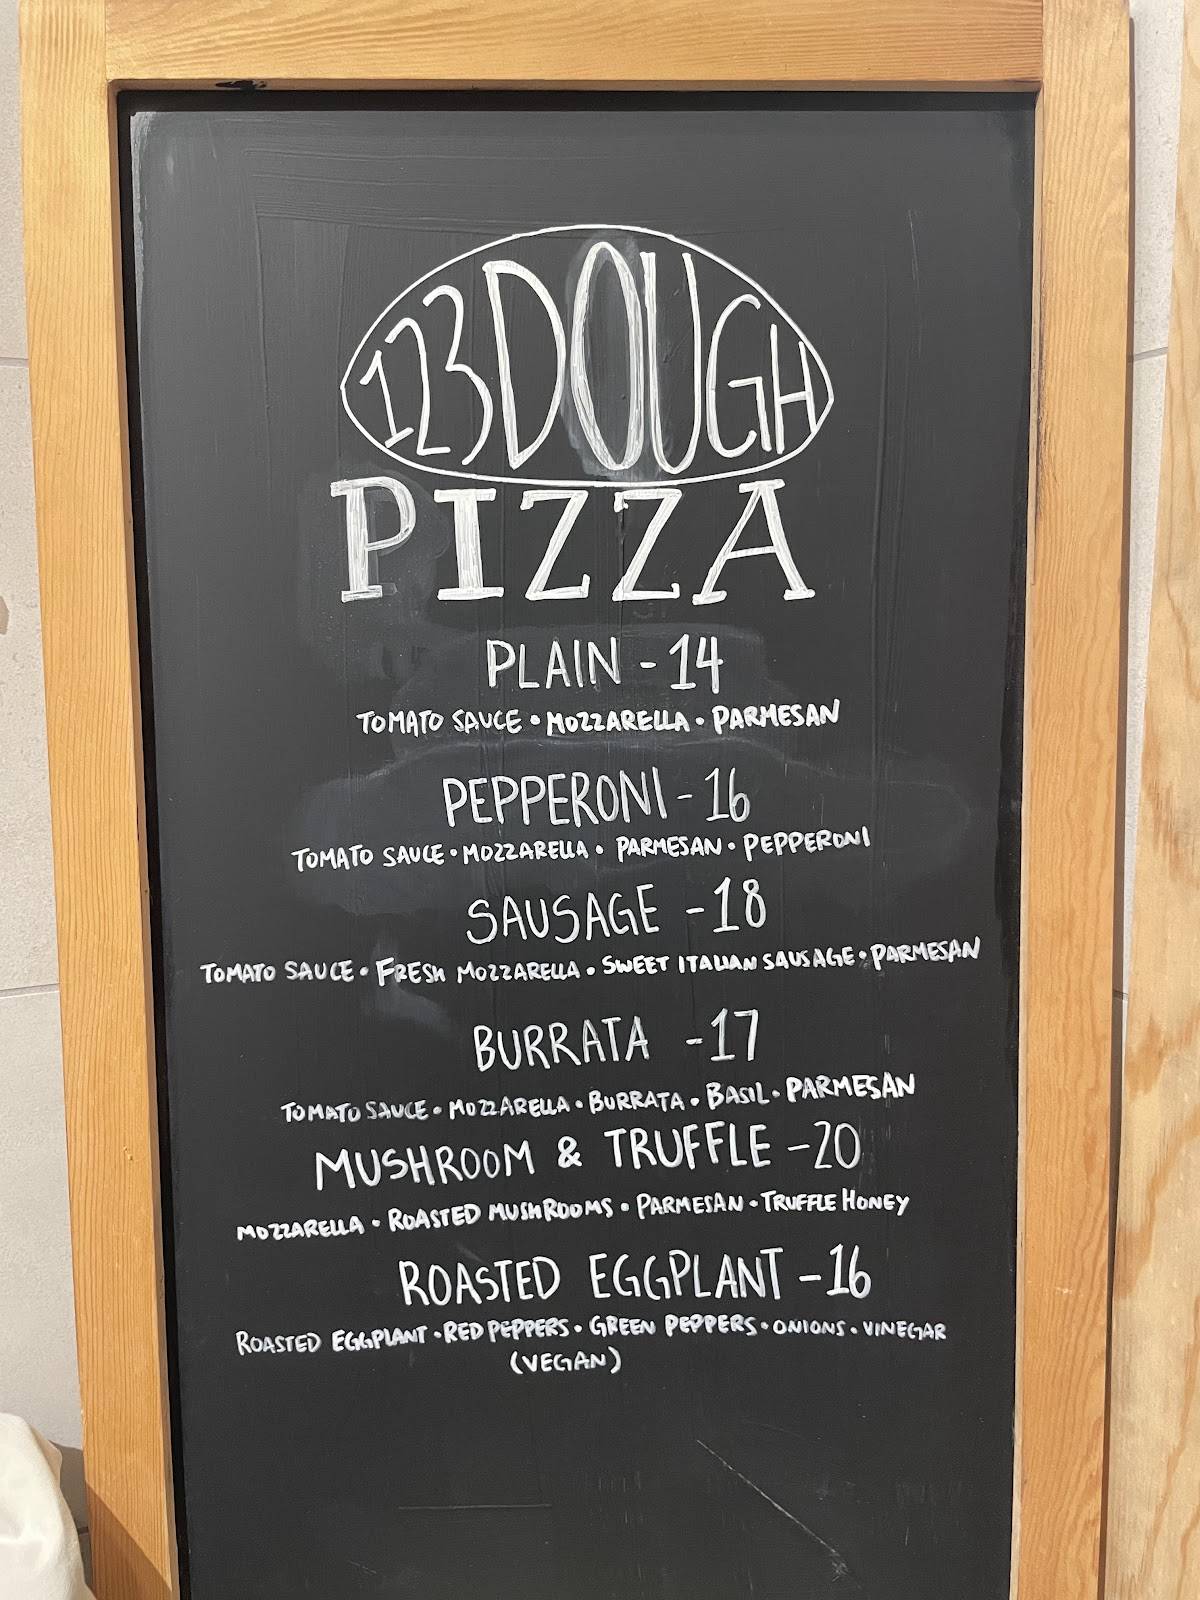 123 DOUGH
PIZZA
PLAIN - 14
TOMATO SAUCE • MOZZARELLA • PARMESAN
PEPPERONI - 16
TOMATO SAUCE • MOZZARELLA • PARMESAN • PEPPERONI
SAUSAGE - 18
TOMATO SAUCE • FRESH MOZZARELLA • SWEET ITALIAN SAUSAGE • PARMESAN
BURRATA - 17
TOMATO SAUCE • MOZZARELLA • BURRATA • BASIL • PARMESAN
MUSHROOM & TRUFFLE - 20
MOZZARELLA • ROASTED MUSHROOMS • PARMESAN • TRUFFLE HONEY
ROASTED EGGPLANT - 16
ROASTED EGGPLANT • RED PEPPERS • GREEN PEPPERS • ONIONS • VINEGAR
(VEGAN)